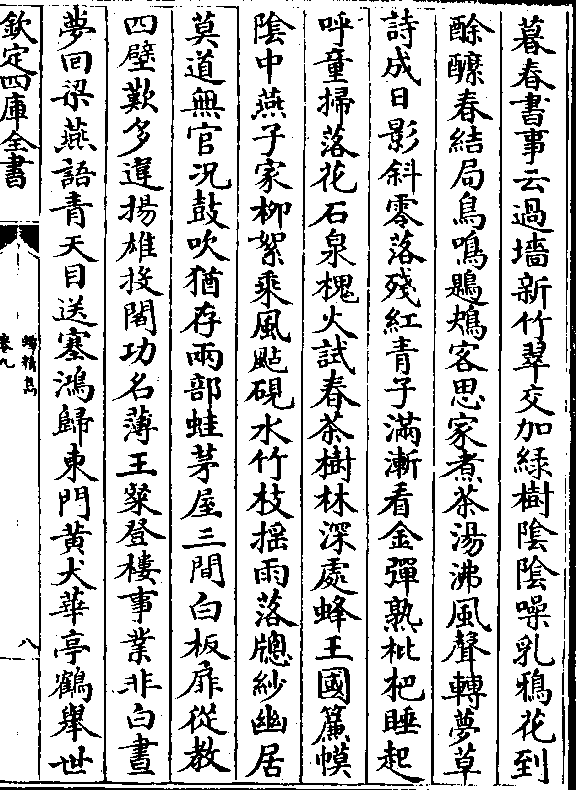 暮春書事云過墻新竹翠交加緑樹隂隂噪乳鴉花到
酴醾春結局鳥鳴鶗鴂客思家煮茶湯沸風聲轉夢草
詩成日影斜零落殘紅青子滿漸看金彈熟枇杷睡起
呼童掃落花石泉槐火試春茶樹林深處蜂王國簾幙
隂中燕子家柳絮乘風㸃硯水竹枝揺雨落牕紗幽居
莫道無官况鼓吹猶存兩部蛙茅屋三間白板扉從教
四壁歎多違揚雄投閣功名薄王粲登樓事業非白晝
夢回梁燕語青天目送塞鴻歸東門黄犬華亭鶴舉世
欽定四庫全書
卷九
八